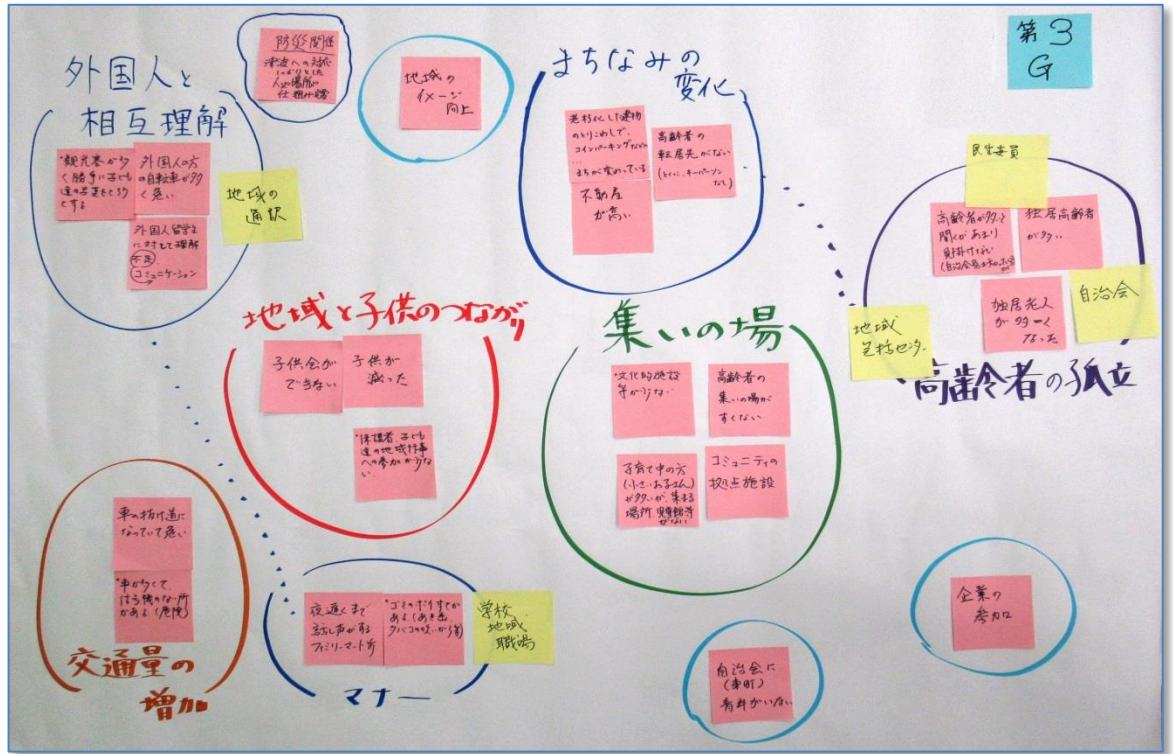 第3
G
外国人と
相互理解
・観光客が多
く勝手に子ども
達の写真をとろう
とする
外国人の方
の自転車が多
く危い
外国人留学生
に対して理解
不足
コミュニケーション
地域の
通訳
防災関係
津波への対応
地域の
イメージ
向上
まちなみの
変化
老朽化した建物
のとりこわしで、
コインパーキングなどの
…
まちが変わっている
高齢者の
転居先がない
(とくに、キーパーソン
なし)
不動産
が高い
民生委員
高齢者が多いと
聞くがあまり
見掛けない
独居高齢者
が多い
独居老人
が多く
なった
自治会
地域
包括センター
高齢者の孤立
地域と子供のつながり
子供会が
できない
子供が
減った
・保護者、子ども
達の地域行事
への参加が少な
い
集いの場
・文化的施設
等が少ない
高齢者の
集いの場が
すくない
子育て中の方
(小さいお子さん)
が多いが、集まる
場所、児童館等
がない
コミュニティの
拠点施設
車の抜け道に
なっていて危い
・車が多くて、
ほう横のない所
がある(危険)
交通量の
増加
夜遅くまで
話し声がする
ファミリーマート前
・ゴミのポイすてが
ある(あき缶、
タバコの吸いがら等)
学校
地域
職場
マナー
自治会に
(東町)
若手がいない
企業の
参加